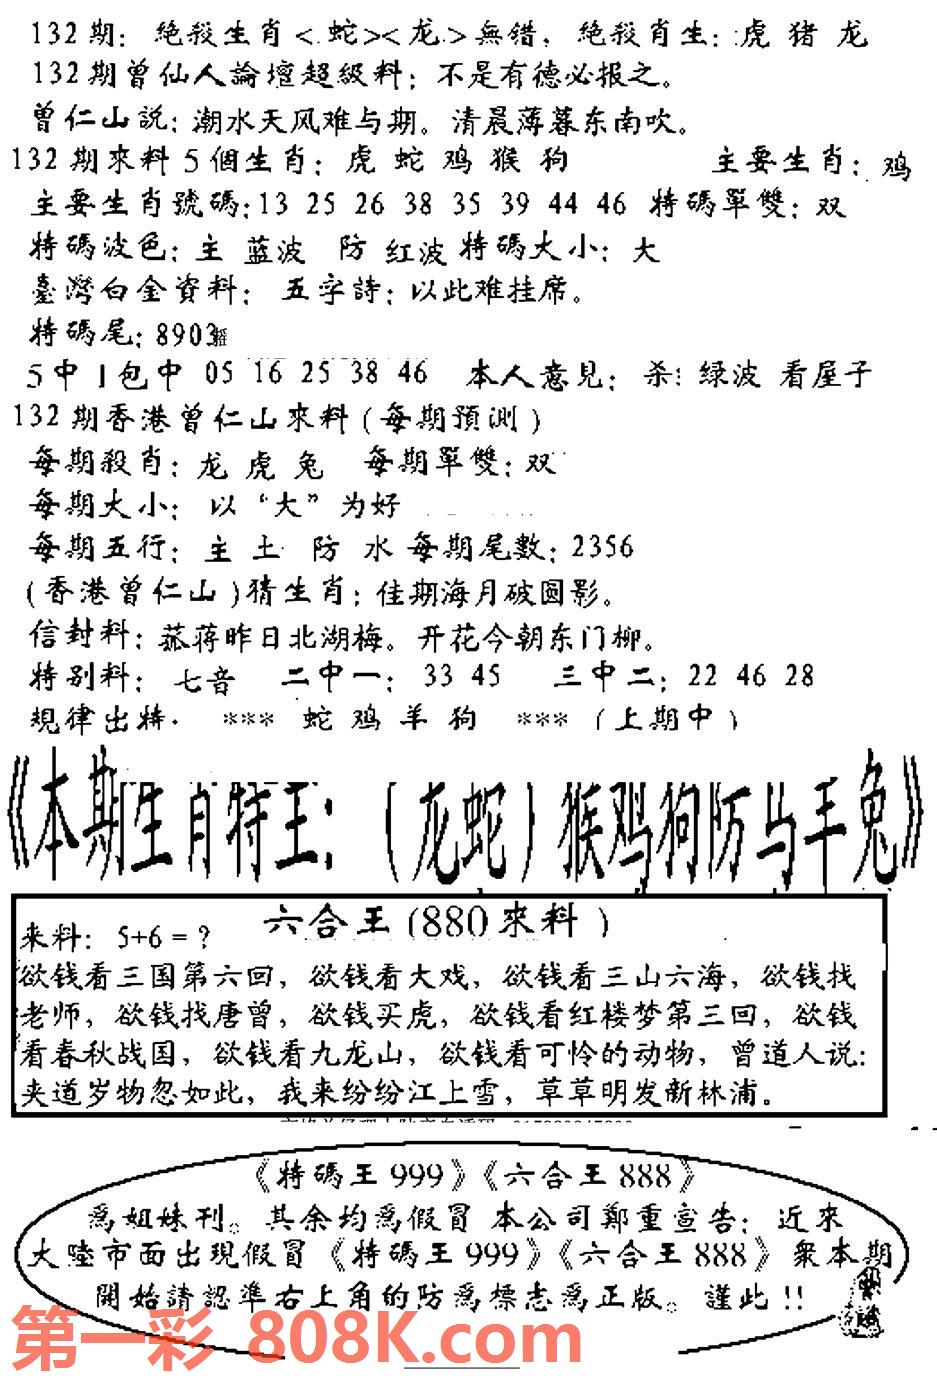 132期: 絶殺生肖<.蛇><龙.>無错, 絶殺肖生: 虎 猪 龙
132期曾仙人論壇超級料: 不是有德必报之。
曾仁山説: 潮水天风难与期。清晨薄暮东南吹。
132期來料5個生肖: 虎 蛇 鸡 猴 狗 主要生肖: 鸡
主要生肖號碼:13 25 26 38 35 39 44 46 特碼單雙: 双
特碼波色: 主 蓝波 防 红波 特碼大小: 大
臺灣白金資料: 五字詩: 以此难挂席。
特碼尾: 8903
5中1包中 05 16 25 38 46 本人意見: 杀: 绿波 看屋子
132期香港曾仁山來料(每期預測)
每期殺肖: 龙 虎 兔 每期單雙: 双
每期大小: 以“大”为好
每期五行: 主 土 防 水 每期尾數: 2356
(香港曾仁山)猜生肖: 佳期海月破圆影。
信封料: 菰蒋昨日北湖梅。开花今朝东门柳。
特别料: 七音 二中一: 33 45 三中二: 22 46 28
規律出特· *** 蛇 鸡 羊 狗 *** (上期中)
《本期生肖特王:(龙蛇)猴鸡狗防马羊兔》
六合王(880來料)
来料: 5+6=?
欲钱看三国第六回，欲钱看大戏，欲钱看三山六海，欲钱找
老师，欲钱找唐曾，欲钱买虎，欲钱看红楼梦第三回，欲钱
看春秋战国，欲钱看九龙山，欲钱看可怜的动物，曾道人说:
夹道岁物忽如此，我来纷纷江上雪，草草明发新林浦。
《特碼王999》《六合王888》
爲姐妹刊。其余均爲假冒 本公司鄭重宣告: 近來
大陸市面出現假冒《特碼王999》《六合王888》衆本期
開始請認準右上角的防爲標志爲正版。謹此!!
第一彩 808K.com